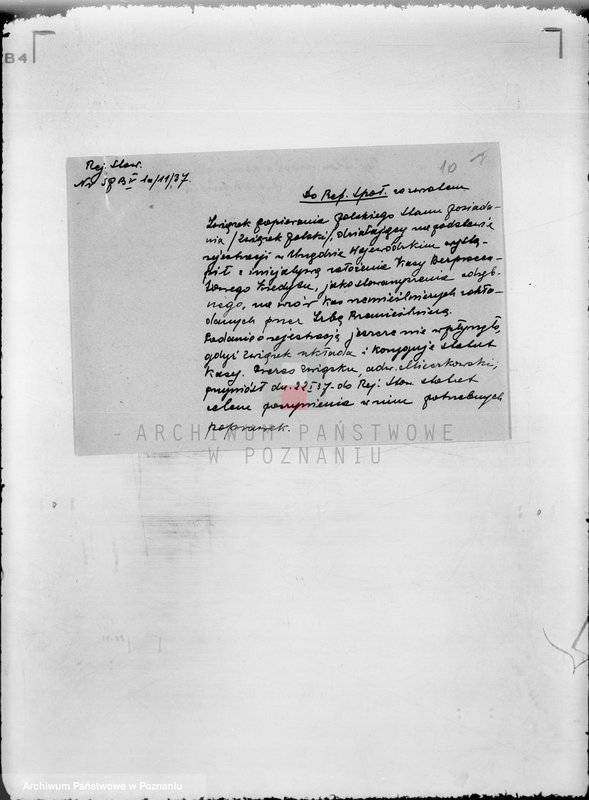 B4
10
Rej. Stow.
Nr Sp B V 1a/11/37.
Do Ref. Społ. ze zwrotem
Związek popierania polskiego stanu posiada-
nia /Związek Polski/, działający na podstawie
rejestracji w Urzędzie Wojewódzkim wystą-
pił z inicjatywą założenia Kasy Bezprocen-
towego Kredytu, jako stowarzyszenia odręb-
nego, na wzór kas rzemieślniczych zakła-
danych przez Izbę Rzemieślniczą.
Podanie o rejestrację jeszcze nie wpłynęło,
gdyż Związek układa i koryguje statut
Kasy. Prezes Związku, adw. Mieczkowski,
przyniósł dn. 22 I 37. do Rej. Stow. statut
celem poczynienia w nim potrzebnych
poprawek.
ARCHIWUM PAŃSTWOWE
W POZNANIU
Archiwum Państwowe w Poznaniu